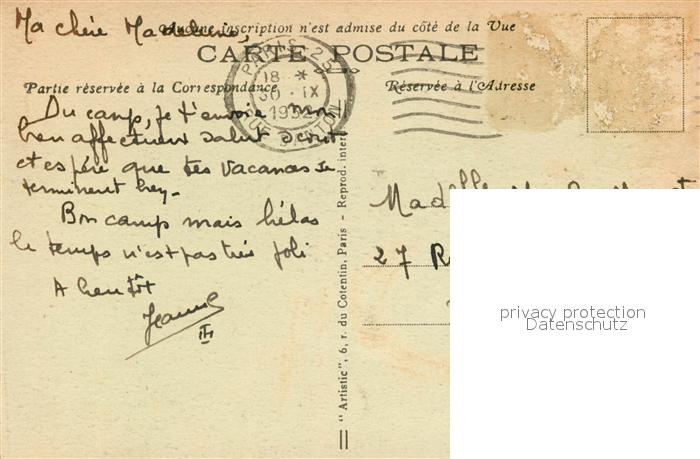 Ma chère Madeleine,
Aucune inscription n'est admise du côté de la Vue
CARTE POSTALE
Partie réservée à la Correspondance
Réservée à l'Adresse
PARIS 25
18 *
30 IX
1932
DANTON
Du camp, je t'envoie mon
bien affectueux salut scout
et espère que tes vacances se
terminent bien.
Bon camp mais hélas
le temps n'est pas très joli
A bientôt
Jeanne
"Artistic", 6, r. du Cotentin, Paris - Reprod. interd
Madelle
27 R
privacy protection
Datenschutz